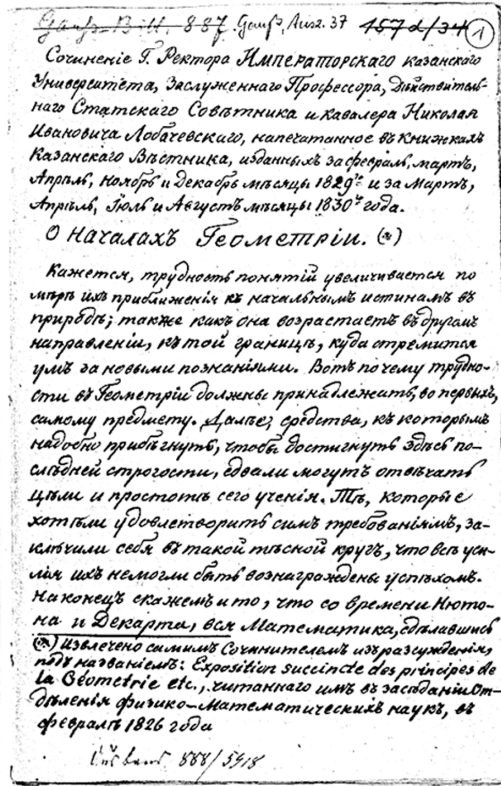 Gauß-Bibl. 887. Gauß, Ausz. 37 157d/34 1
Сочиненіе Г. Ректора Императорскаго казанскаго
Университета, Заслуженнаго Профессора, Дѣйствитель-
наго Статскаго Совѣтника и кавалера Николая
Ивановича Лобачевскаго, напечатанное въ книжкахъ
Казанскаго Вѣстника, изданныхъ за февраль, мартъ,
Апрѣль, Ноябрь и Декабрь мѣсяцы 1829го и за Мартъ,
Апрѣль, Іюль и Августъ мѣсяцы 1830го года.
О началахъ Геометріи. (*)
Кажется, трудность понятій увеличивается по
мѣрѣ ихъ приближенія къ начальнымъ истинамъ въ
природѣ; также какъ она возрастаетъ въ другомъ
направленіи, къ той границѣ, куда стремится
умъ за новыми познаніями. Вотъ почему трудно-
сти въ Геометріи должны принадлежать, во первыхъ,
самому предмету. Далѣе, средства, къ которымъ
надобно прибѣгнуть, чтобы достигнуть здѣсь по-
слѣдней строгости, едвали могутъ отвѣчать
цѣли и простотѣ сего ученія. Тѣ, которые
хотѣли удовлетворить симъ требованіямъ, за-
ключили себя въ такой тѣсной кругъ, что всѣ уси-
лія ихъ немогли быть вознаграждены успѣхомъ.
На конецъ скажемъ и то, что со времени Нюто-
на и Декарта, вся Математика, сдѣлавшись
(*) Извлечено самимъ Сочинителемъ изъ разсужденія,
подъ названіемъ: Exposition succincte des principes de
la Géometrie etc., читаннаго имъ въ засѣданіи От-
дѣленія физико-Математическихъ наукъ, въ
февралѣ 1826 года
888/5418